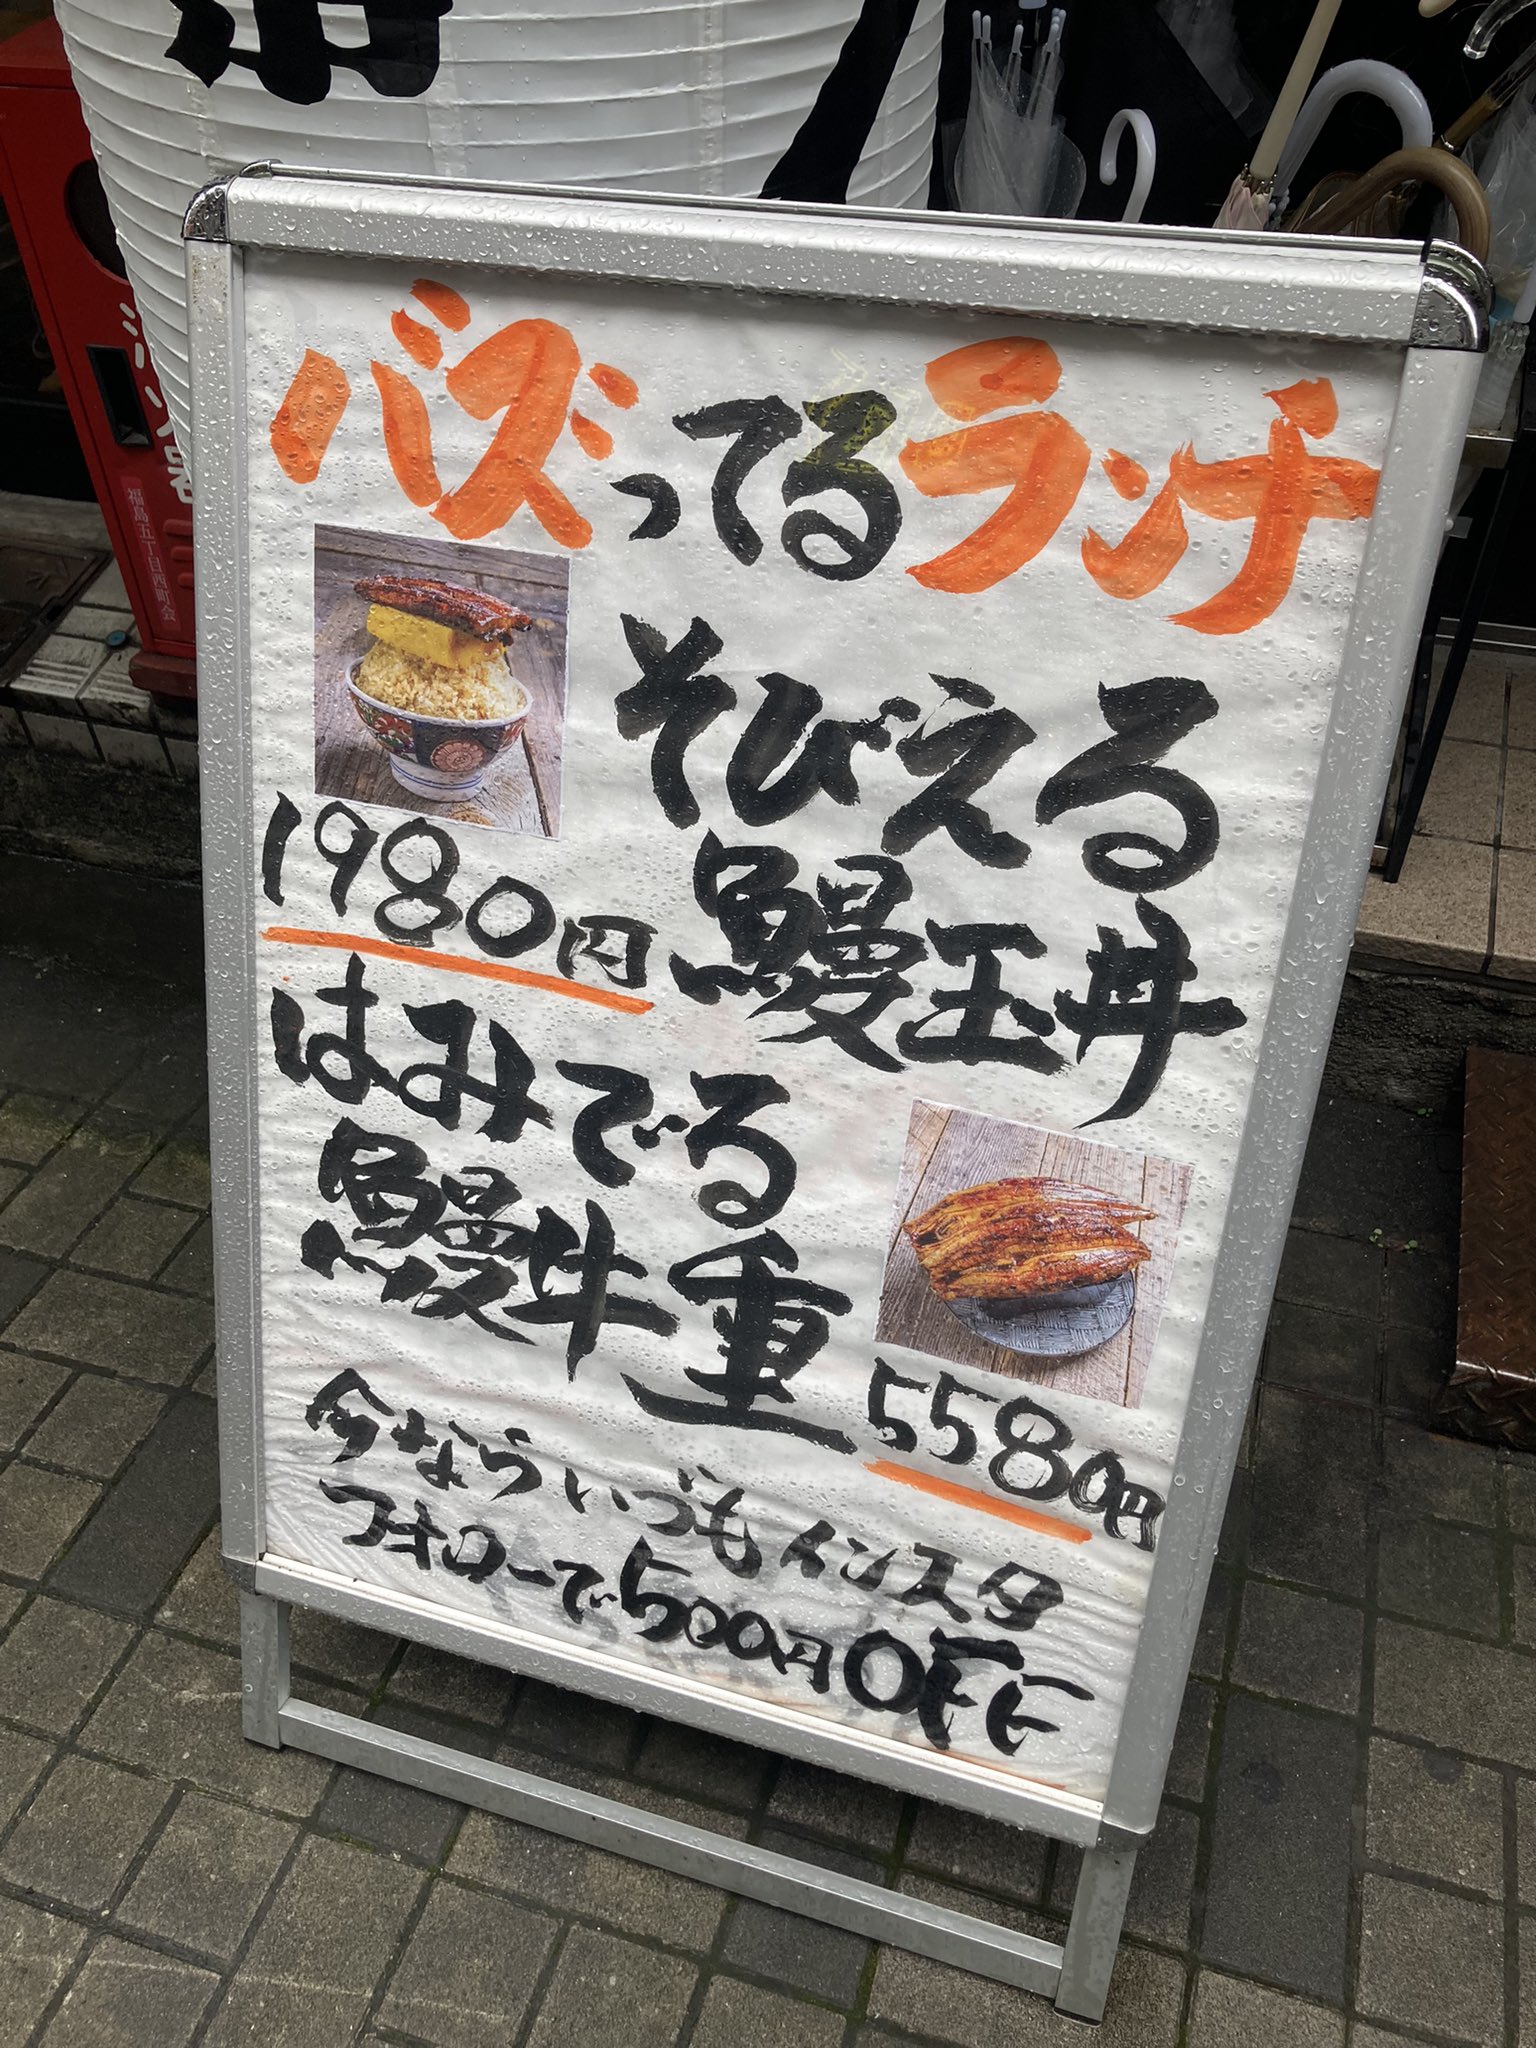 バズってるランチ
そびえる
鰻玉丼
1980円
はみでる
鰻牛重
5580円
今ならいづもインスタ
フォローで500円OFF
消火器
福島五丁目西町会